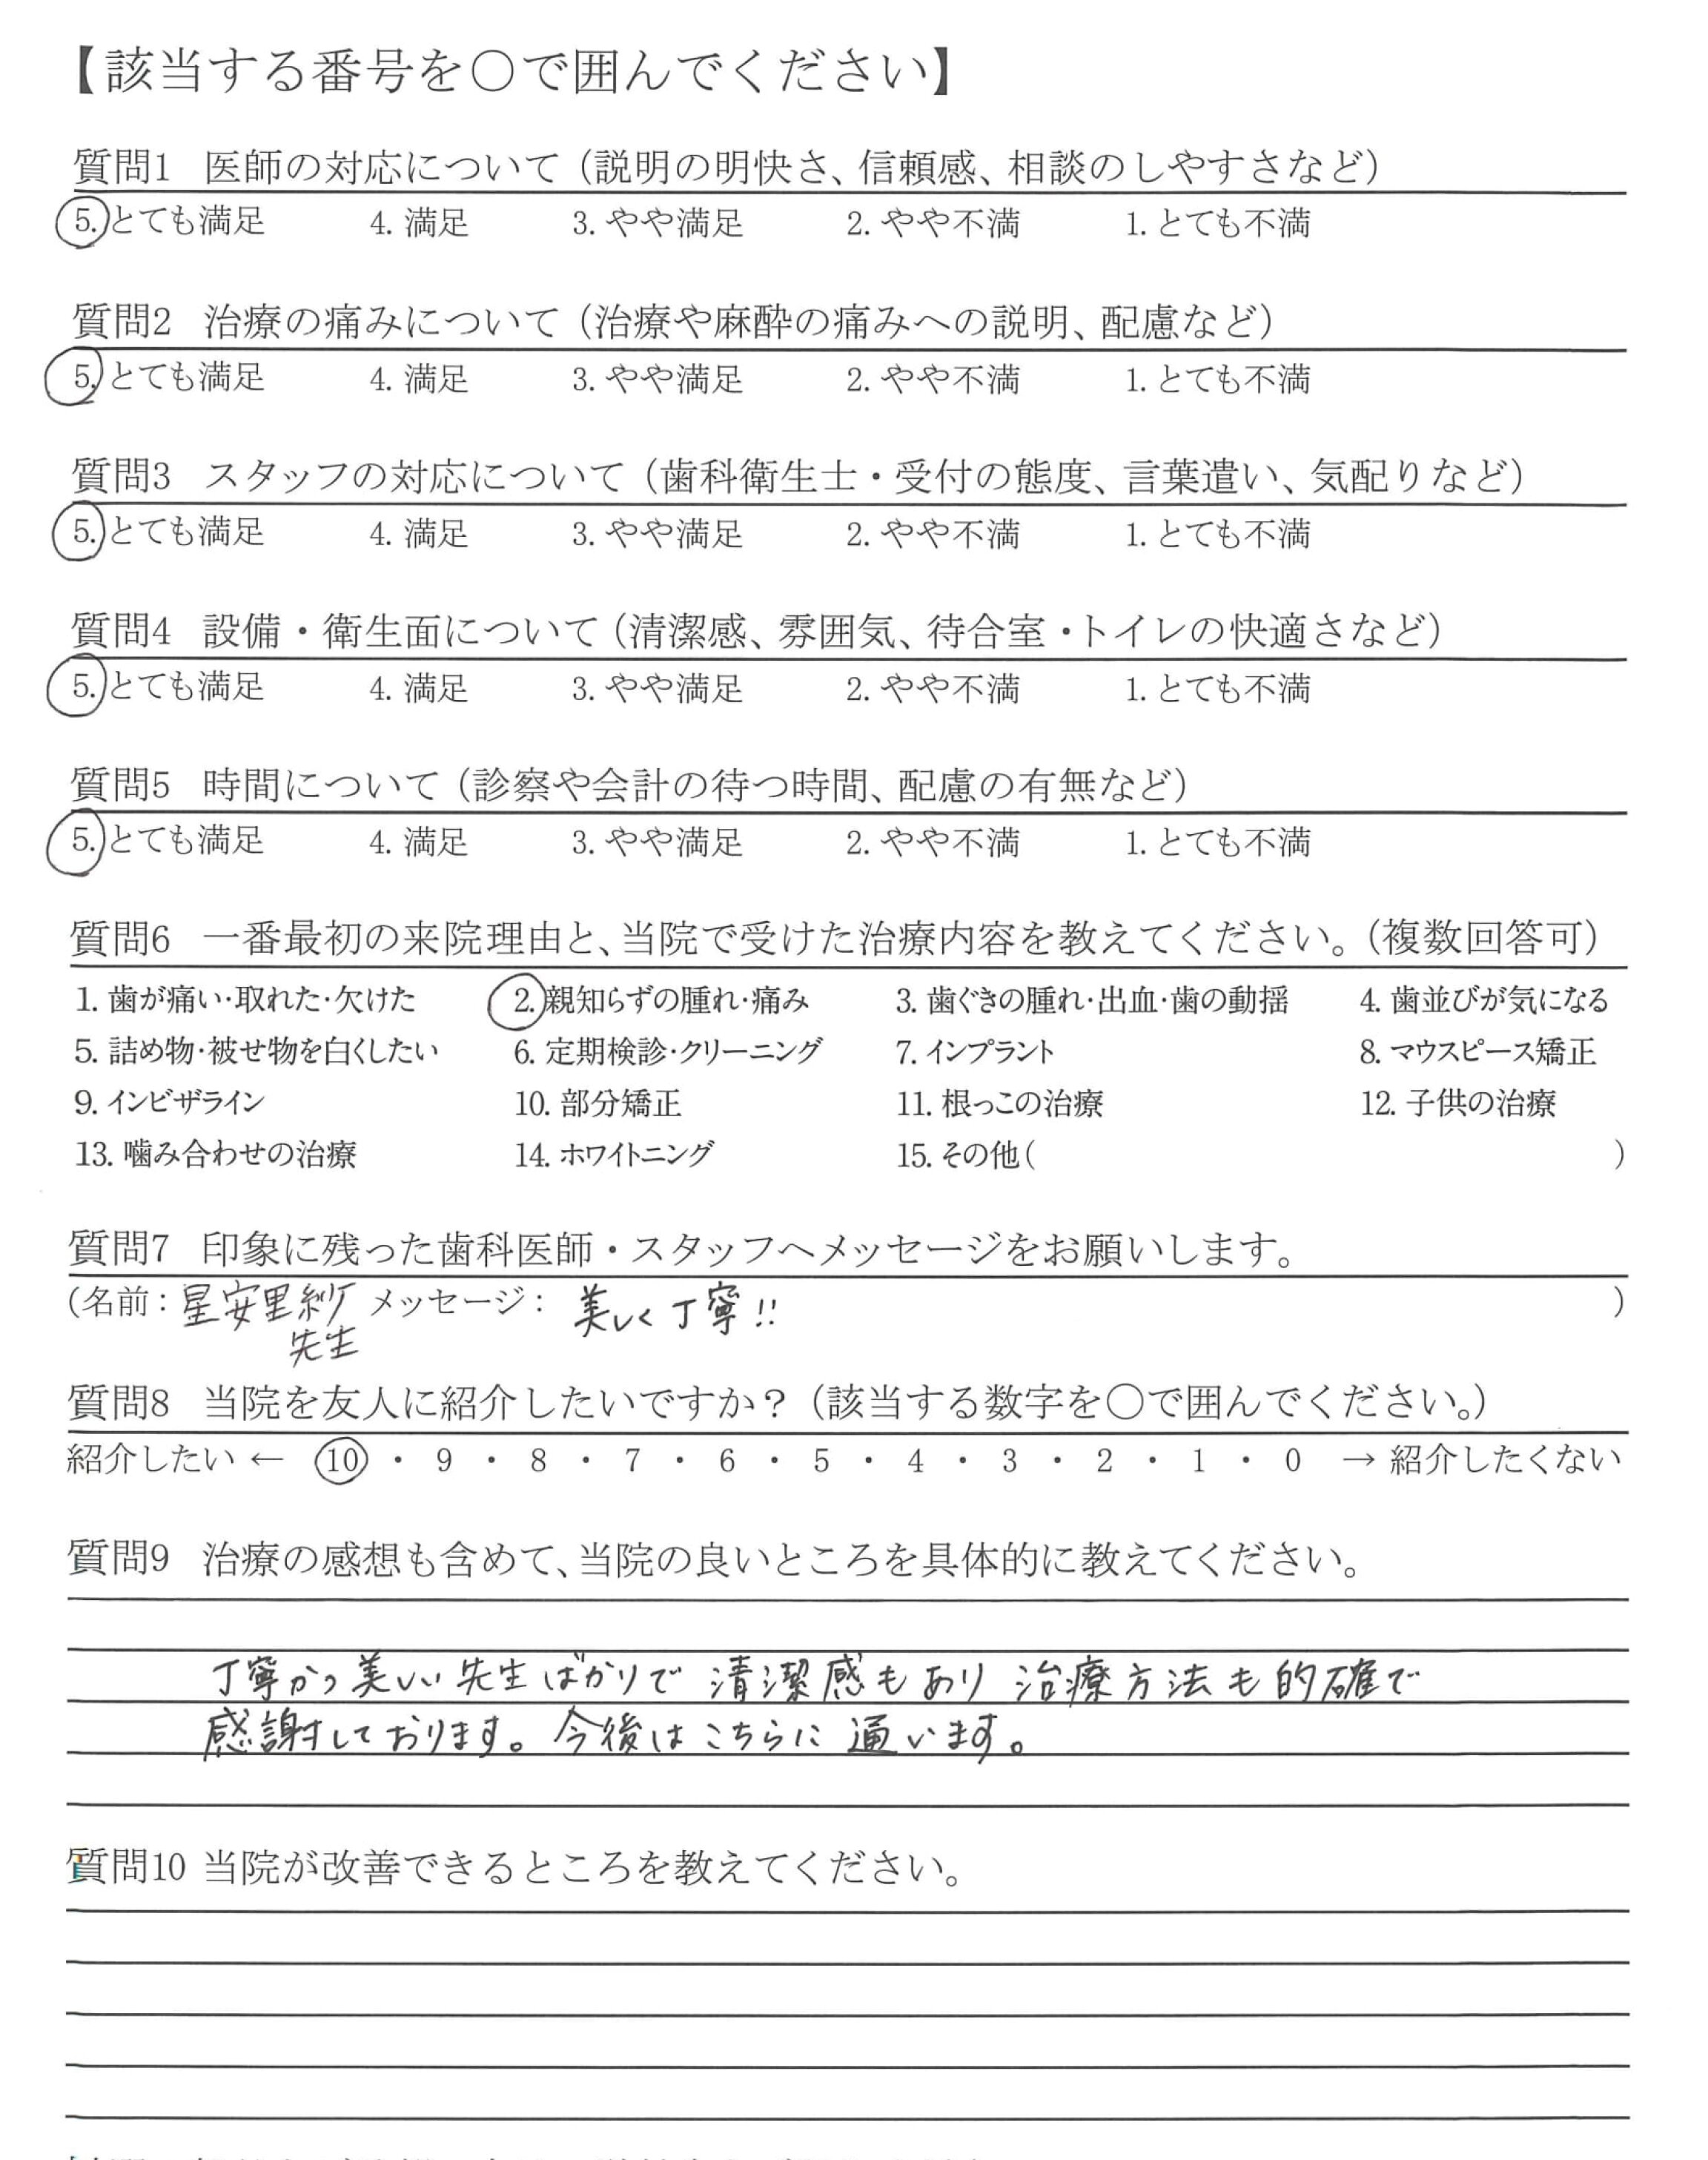 【該当する番号を○で囲んでください】
質問1 医師の対応について（説明の明快さ、信頼感、相談のしやすさなど）
5. とても満足 4. 満足 3. やや満足 2. やや不満 1. とても不満
質問2 治療の痛みについて（治療や麻酔の痛みへの説明、配慮など）
5. とても満足 4. 満足 3. やや満足 2. やや不満 1. とても不満
質問3 スタッフの対応について（歯科衛生士・受付の態度、言葉遣い、気配りなど）
5. とても満足 4. 満足 3. やや満足 2. やや不満 1. とても不満
質問4 設備・衛生面について（清潔感、雰囲気、待合室・トイレの快適さなど）
5. とても満足 4. 満足 3. やや満足 2. やや不満 1. とても不満
質問5 時間について（診察や会計の待つ時間、配慮の有無など）
5. とても満足 4. 満足 3. やや満足 2. やや不満 1. とても不満
質問6 一番最初の来院理由と、当院で受けた治療内容を教えてください。（複数回答可）
1. 歯が痛い・取れた・欠けた 2. 親知らずの腫れ・痛み 3. 歯ぐきの腫れ・出血・歯の動揺 4. 歯並びが気になる
5. 詰め物・被せ物を白くしたい 6. 定期検診・クリーニング 7. インプラント 8. マウスピース矯正
9. インビザライン 10. 部分矯正 11. 根っこの治療 12. 子供の治療
13. 噛み合わせの治療 14. ホワイトニング 15. その他（ ）
質問7 印象に残った歯科医師・スタッフへメッセージをお願いします。
（名前：星安里紗 メッセージ： 美しく丁寧!! ）
先生
質問8 当院を友人に紹介したいですか？（該当する数字を○で囲んでください。）
紹介したい ← 10 ・ 9 ・ 8 ・ 7 ・ 6 ・ 5 ・ 4 ・ 3 ・ 2 ・ 1 ・ 0 → 紹介したくない
質問9 治療の感想も含めて、当院の良いところを具体的に教えてください。
丁寧かつ美しい先生ばかりで 清潔感もあり 治療方法も的確で
感謝しております。今後はこちらに通います。
質問10 当院が改善できるところを教えてください。